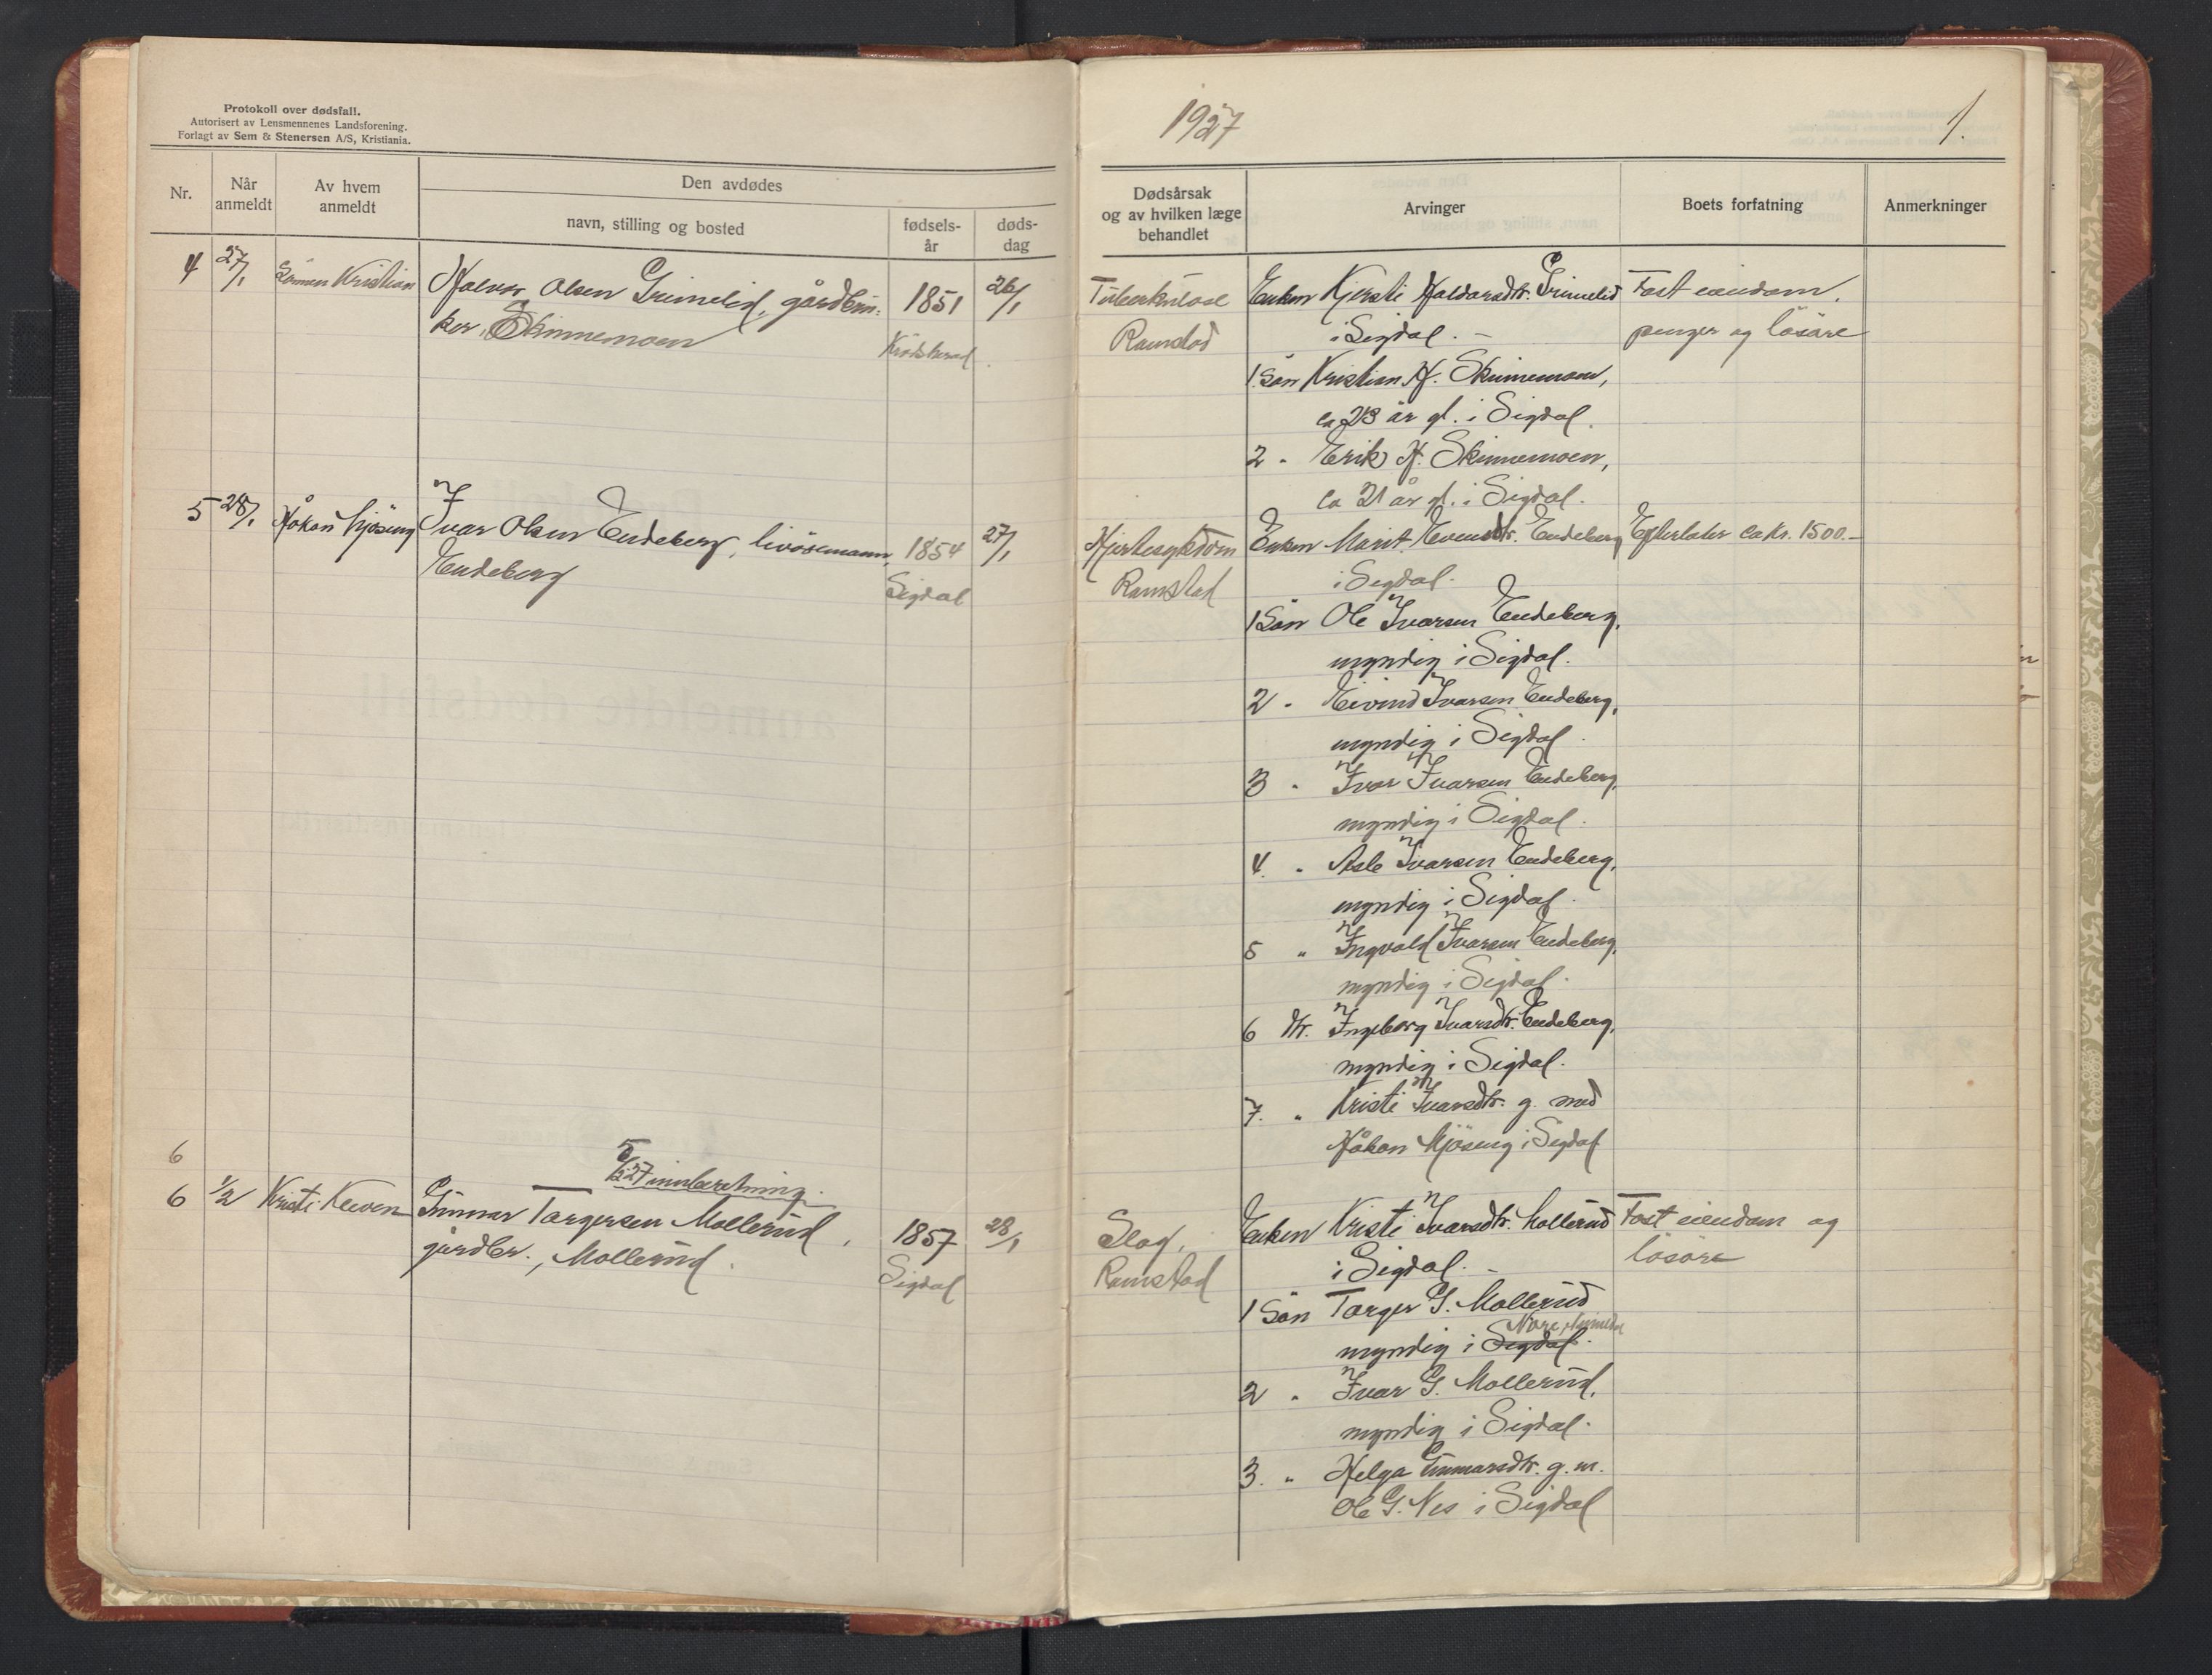 Protokoll over dødsfall.
Autorisert av Lensmennenes Landsforening.
Forlagt av Sem & Stenersen A/S, Kristiania.
Nr.
Når anmeldt
Av hvem anmeldt
Den avdødes
navn, stilling og bosted
fødsels-år
døds-dag
4 27/1 Sönnen Kristian Halvor Olsen Grimelid, gårdbru- 1851 26/1
ker, Skinnemoen Krödsherad
5 28/1 Håkon Ivar Olsen Endeberg, livösemann, 1854 27/1
Endeberg Sigdal
6
5/2 27 innberetning.
6 1/2 Kristi Gunnar Torgersen Mollerud, 1857 28/1
gårdbr., Mollerud. Sigdal
1927
1.
Dødsårsak og av hvilken læge behandlet
Arvinger
Boets forfatning
Anmerkninger
Tuberkulose Enken Kjersti Haldorsdtr. Grimelid Fast eiendom,
Ramstad i Sigdal. – penger og lösöre
1 Sön Kristian H. Skinnemoen,
ca 23 år gl. i Sigdal.
2 " Erik H. Skinnemoen,
ca 21 år gl. i Sigdal.
Hjertesykdom Enken Marit Evensdtr. Endeberg Efterlater ca kr. 1500.–
Ramstad i Sigdal.
1 Sön Ole Ivarsen Endeberg,
myndig i Sigdal.
2 " Eivind Ivarsen Endeberg,
myndig i Sigdal.
3 " Ivar Ivarsen Endeberg,
myndig i Sigdal.
4. " Asle Ivarsen Endeberg,
myndig i Sigdal.
5 " Ingvald Ivarsen Endeberg,
myndig i Sigdal.
6 Dtr. Ingeborg Ivarsdtr. Endeberg,
myndig i Sigdal.
7. " Kristi Ivarsdtr. g. med
Håkon i Sigdal
Slag, Enken Kristi Ivarsdtr. Mollerud Fast eiendom og
Ramstad i Sigdal. – lösöre
1 Sön Torger G. Mollerud
Nore, Numedal
myndig i Sigdal.
2 " Ivar G. Mollerud,
myndig i Sigdal.
3. " Helga Gunnarsdtr. g. m.
Ole G. Nes i Sigdal